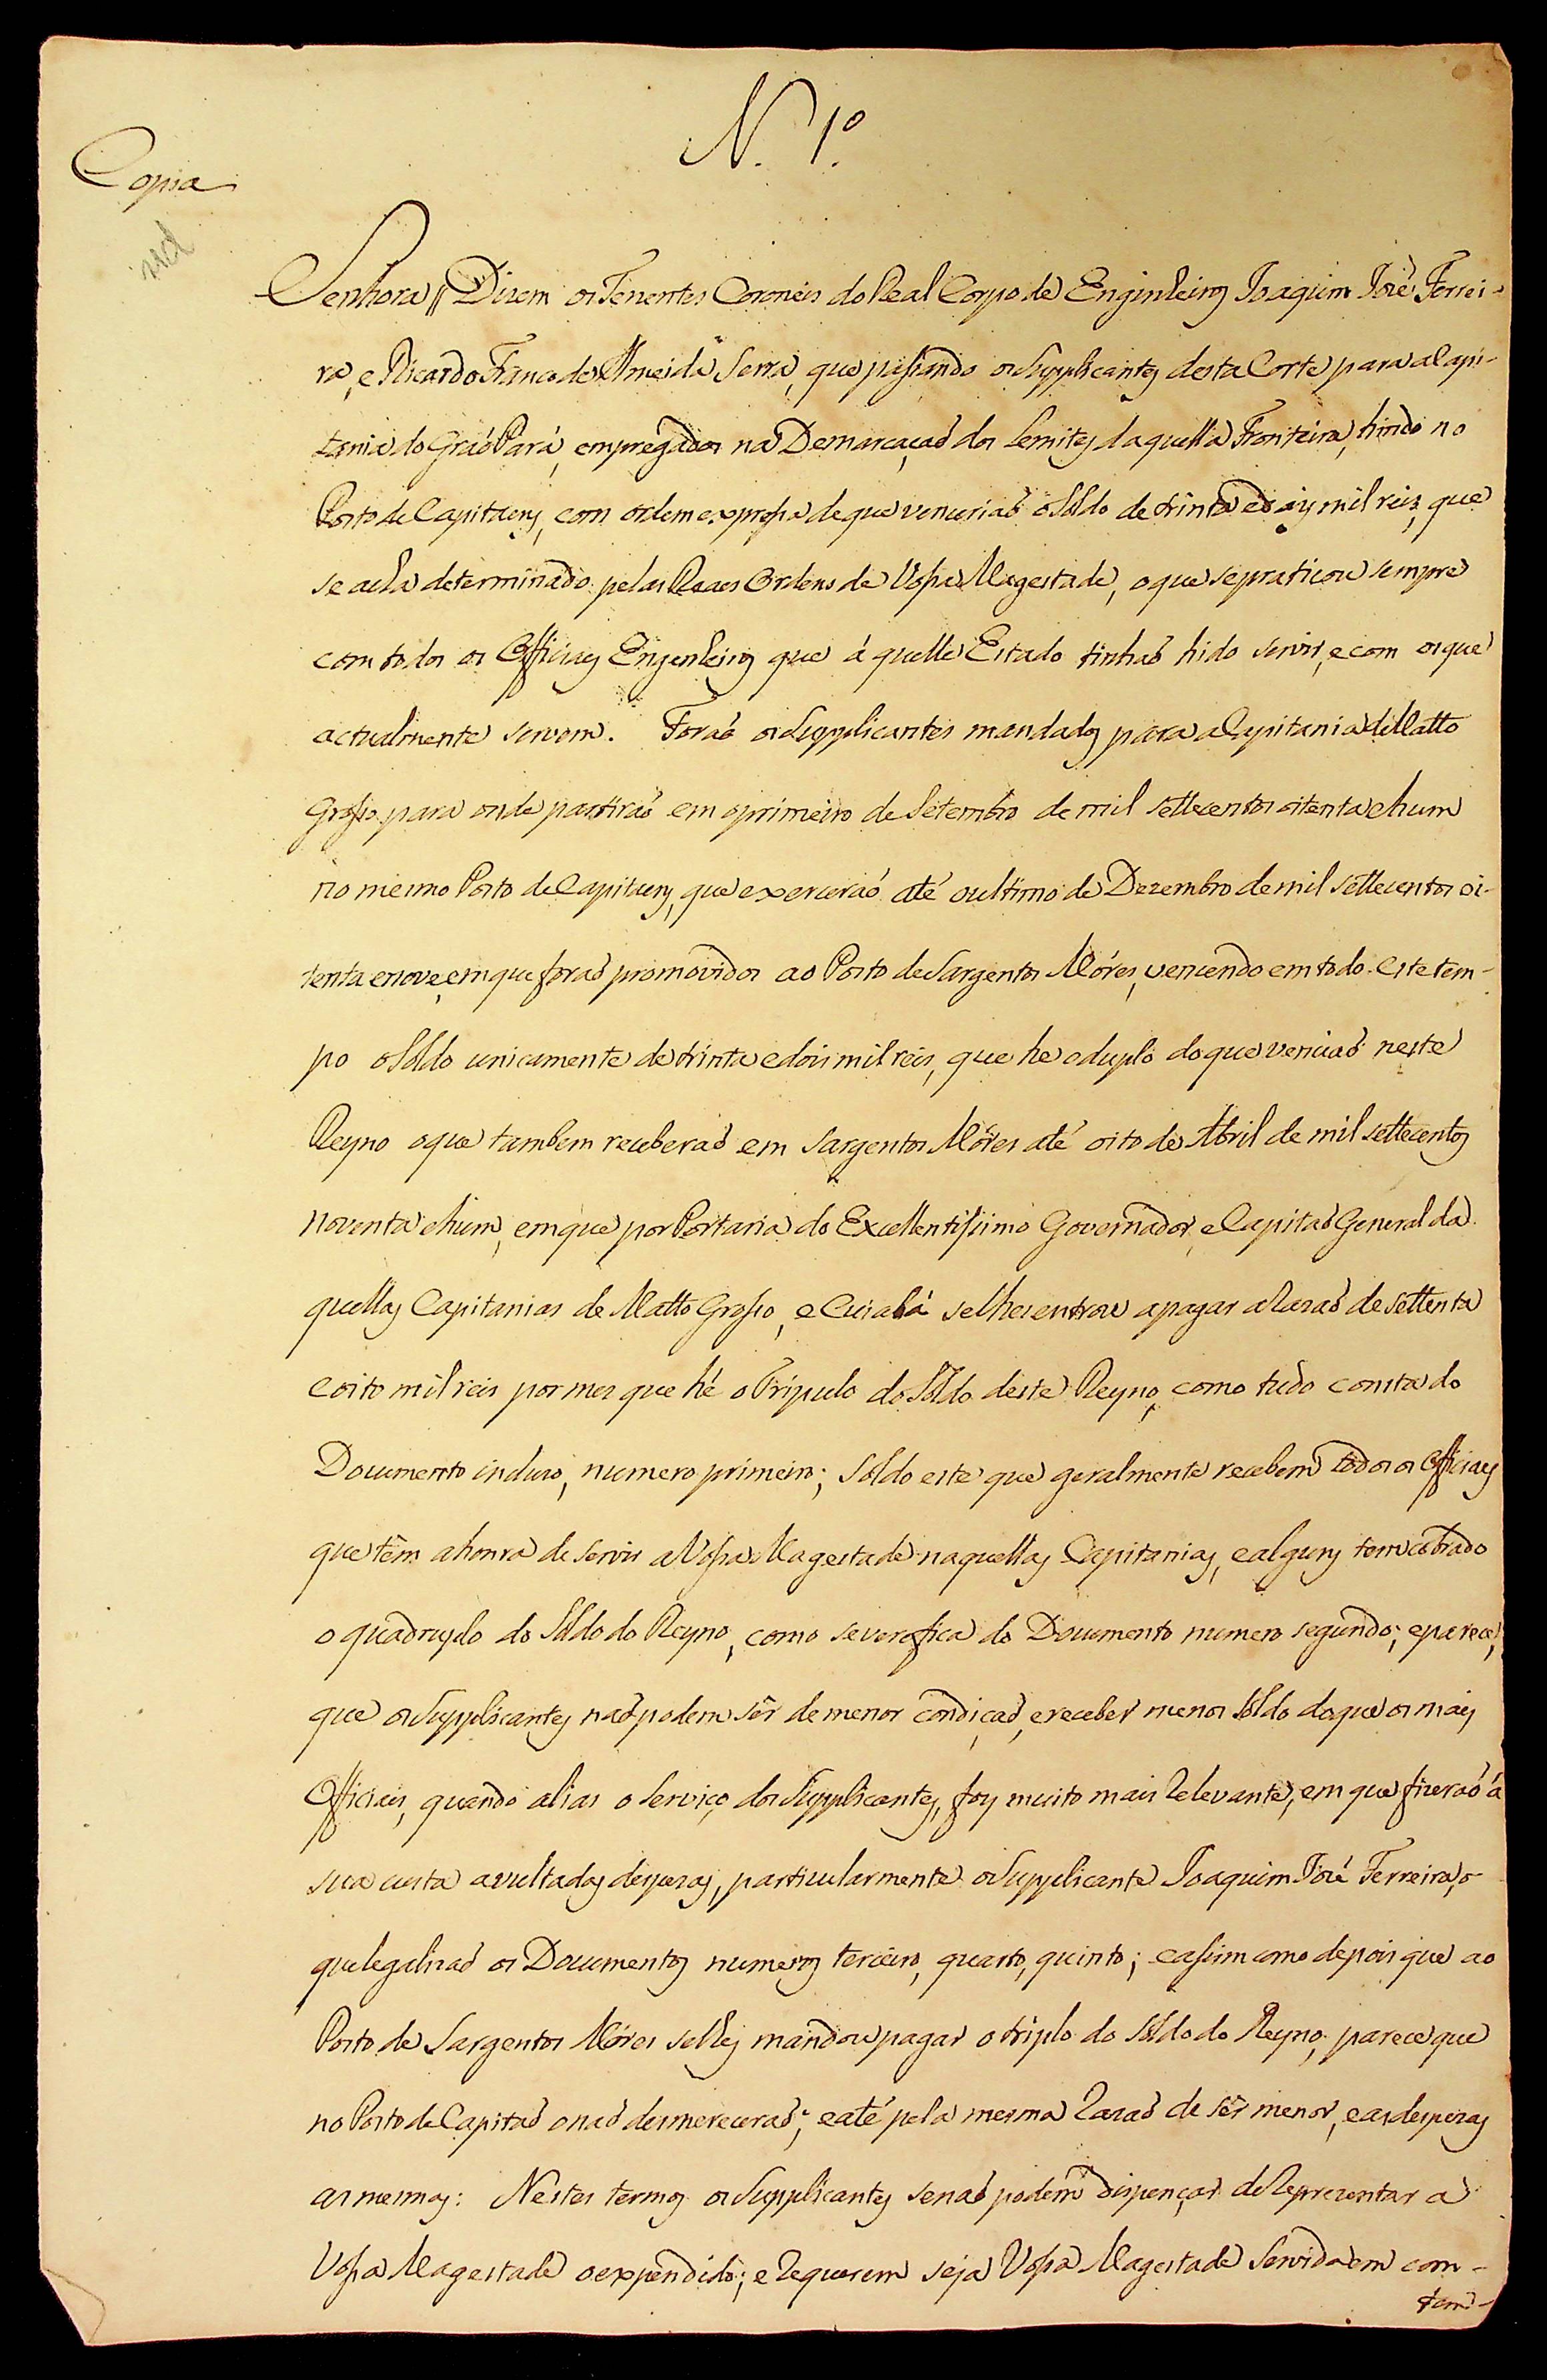 N. 1º
Copia
Senhora // Dizem os Tenentes Coroneis do Real Corpo de Enginheiros Joaquim José Ferrei-
ra, e Ricardo Franco de Almeida Serra, que passando os Supplicantes desta Corte para a Capi-
tania do Graõ Pará, empregados na Demarcaçaõ dos Lemites daquella Fronteira, hindo no
Posto de Capitaens, com ordem expressa de que venceriaõ o Soldo de trinta e dois mil reis, que
se acha determinado pelas Reaes Ordens de Vossa Magestade, o que se praticou sempre
com todos os Officiaes Engenheiros que á quelle Estado tinhaõ hido servir, e com os que
actualmente servem. Foraõ os Supplicantes mandados para a Capitania de Matto
Grosso para onde partiraõ em o primeiro de Setembro de mil settecentos oitenta e hum
no mesmo Posto de Capitaens, que exerceraõ até o ultimo de Dezembro de mil settecentos oi-
tenta e nove, em que foraõ promovidos ao Posto de Sargentos Móres, vencendo em todo este tem-
po o Soldo unicamente de trinta e dois mil reis, que he o duplo do que venciaõ neste
Reyno o que tambem receberaõ em Sargentos Móres até oito de Abril de mil settecentos
noventa e hum, em que por Portaria do Excellentissimo Governador, e Capitaõ General da
quellas Capitanias de Matto Grosso, e Cuiabá se lhes entrou a pagar a razaõ de settenta
e oito mil reis por mez que hé o Tripulo do Soldo deste Reyno, como tudo consta do
Documento incluso, numero primeiro; Soldo este que geralmente recebem todos os Officiaes
que têm a honra de servir a Vossa Magestade naquellas Capitanias, e alguns tem cobrado
o quadruplo do Soldo do Reyno, como se verefica do Documento numero segundo; e parece,
que os Supplicantes naõ podem sêr de menor condiçaõ, e receber menos Soldo do que os mais
Officiais, quando alias o Serviço dos Supplicantes, foy muito mais relevante, em que fizeraõ á
sua custa avultadas despezas, particularmente o Supplicante Joaquim José Ferreira, o
que legalizaõ os Documentos numeros terceiro, quarto, quinto; e assim como depois que ao
Posto de Sargentos Móres se lhes mandou pagar o triplo do Soldo do Reyno, parece que
no Posto de Capitaõ o naõ desmereceraõ; e até pela mesma razaõ de sêr menor, e as despezas
as mesmas: Nestes termos os Supplicantes se naõ podem dispençar de Reprezentar a
Vossa Magestade o expendido; e requerem seja Vossa Magestade Servida em com-
tem-